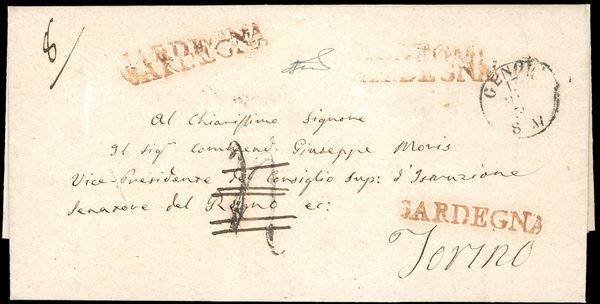 8/
SARDEGNA
SARDEGNA
SARDEGNA
SARDEGNA
GENOVA
8 M
Al Chiarissimo Signore
Il Sigr Commend. Giuseppe Moris
Vice-Presidente del Consiglio Sup: d'Istruzione
Senatore del Regno ec:
SARDEGNA
Torino